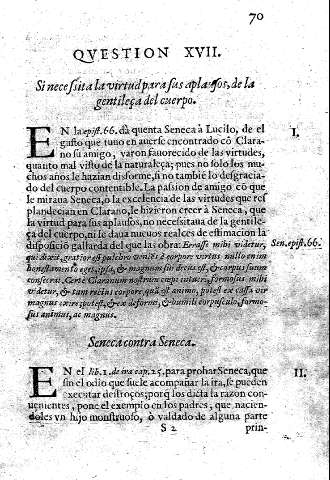 70
QVESTION XVII.
Si necessita la virtud para sus aplausos, de la
gentileça del cuerpo.
EN la epist. 66. dà quenta Seneca à Lucilo, de el
I.
gusto que tuuo en auerse encontrado cō Clara-
no su amigo, varon fauorecido de las virtudes,
quanto mal visto de la naturaleça; pues no solo los mu-
chos años le hazian disforme, si no tambiē lo desgracia-
do del cuerpo contentible. La passion de amigo cō que
le miraua Seneca, ò la excelencia de las virtudes que ref
plandecian en Clarano, le hizieron creer à Seneca, que
la virtud para sus aplausos, no necesitaua de la gentile-
ça del cuerpo, ni le daua nueuos realces de estimacion la
disposiciō gallarda del que las obra: Errasse mihi videtur,
Sen. epist. 66.
qui dixit, gratior est pulchro veniēs è corpore virtus nullo enim
honestamento eget, ipsa, & magnum sui decus est, & corpus suum
consecrat. Certè Claranum nostrum cœpi intueri, formosus mihi
videtur, & tam rectus corpore, quā est animo, potest ex cassa vir
magnus exire, potest, & ex deforme, & humili corpusculo, formo-
sus animus, ac magnus.
Seneca contra Seneca.
EN el lib. 1. de ira cap. 25. para probar Seneca, que
II.
sin el odio que suele acompañar la ira, se pueden
executar destroços, porq̃ los dicta la razon con-
uenientes, pone el exemplo en los padres, que nacien-
doles vn hijo monstruoso, ò valdado de alguna parte
S 2 prin-